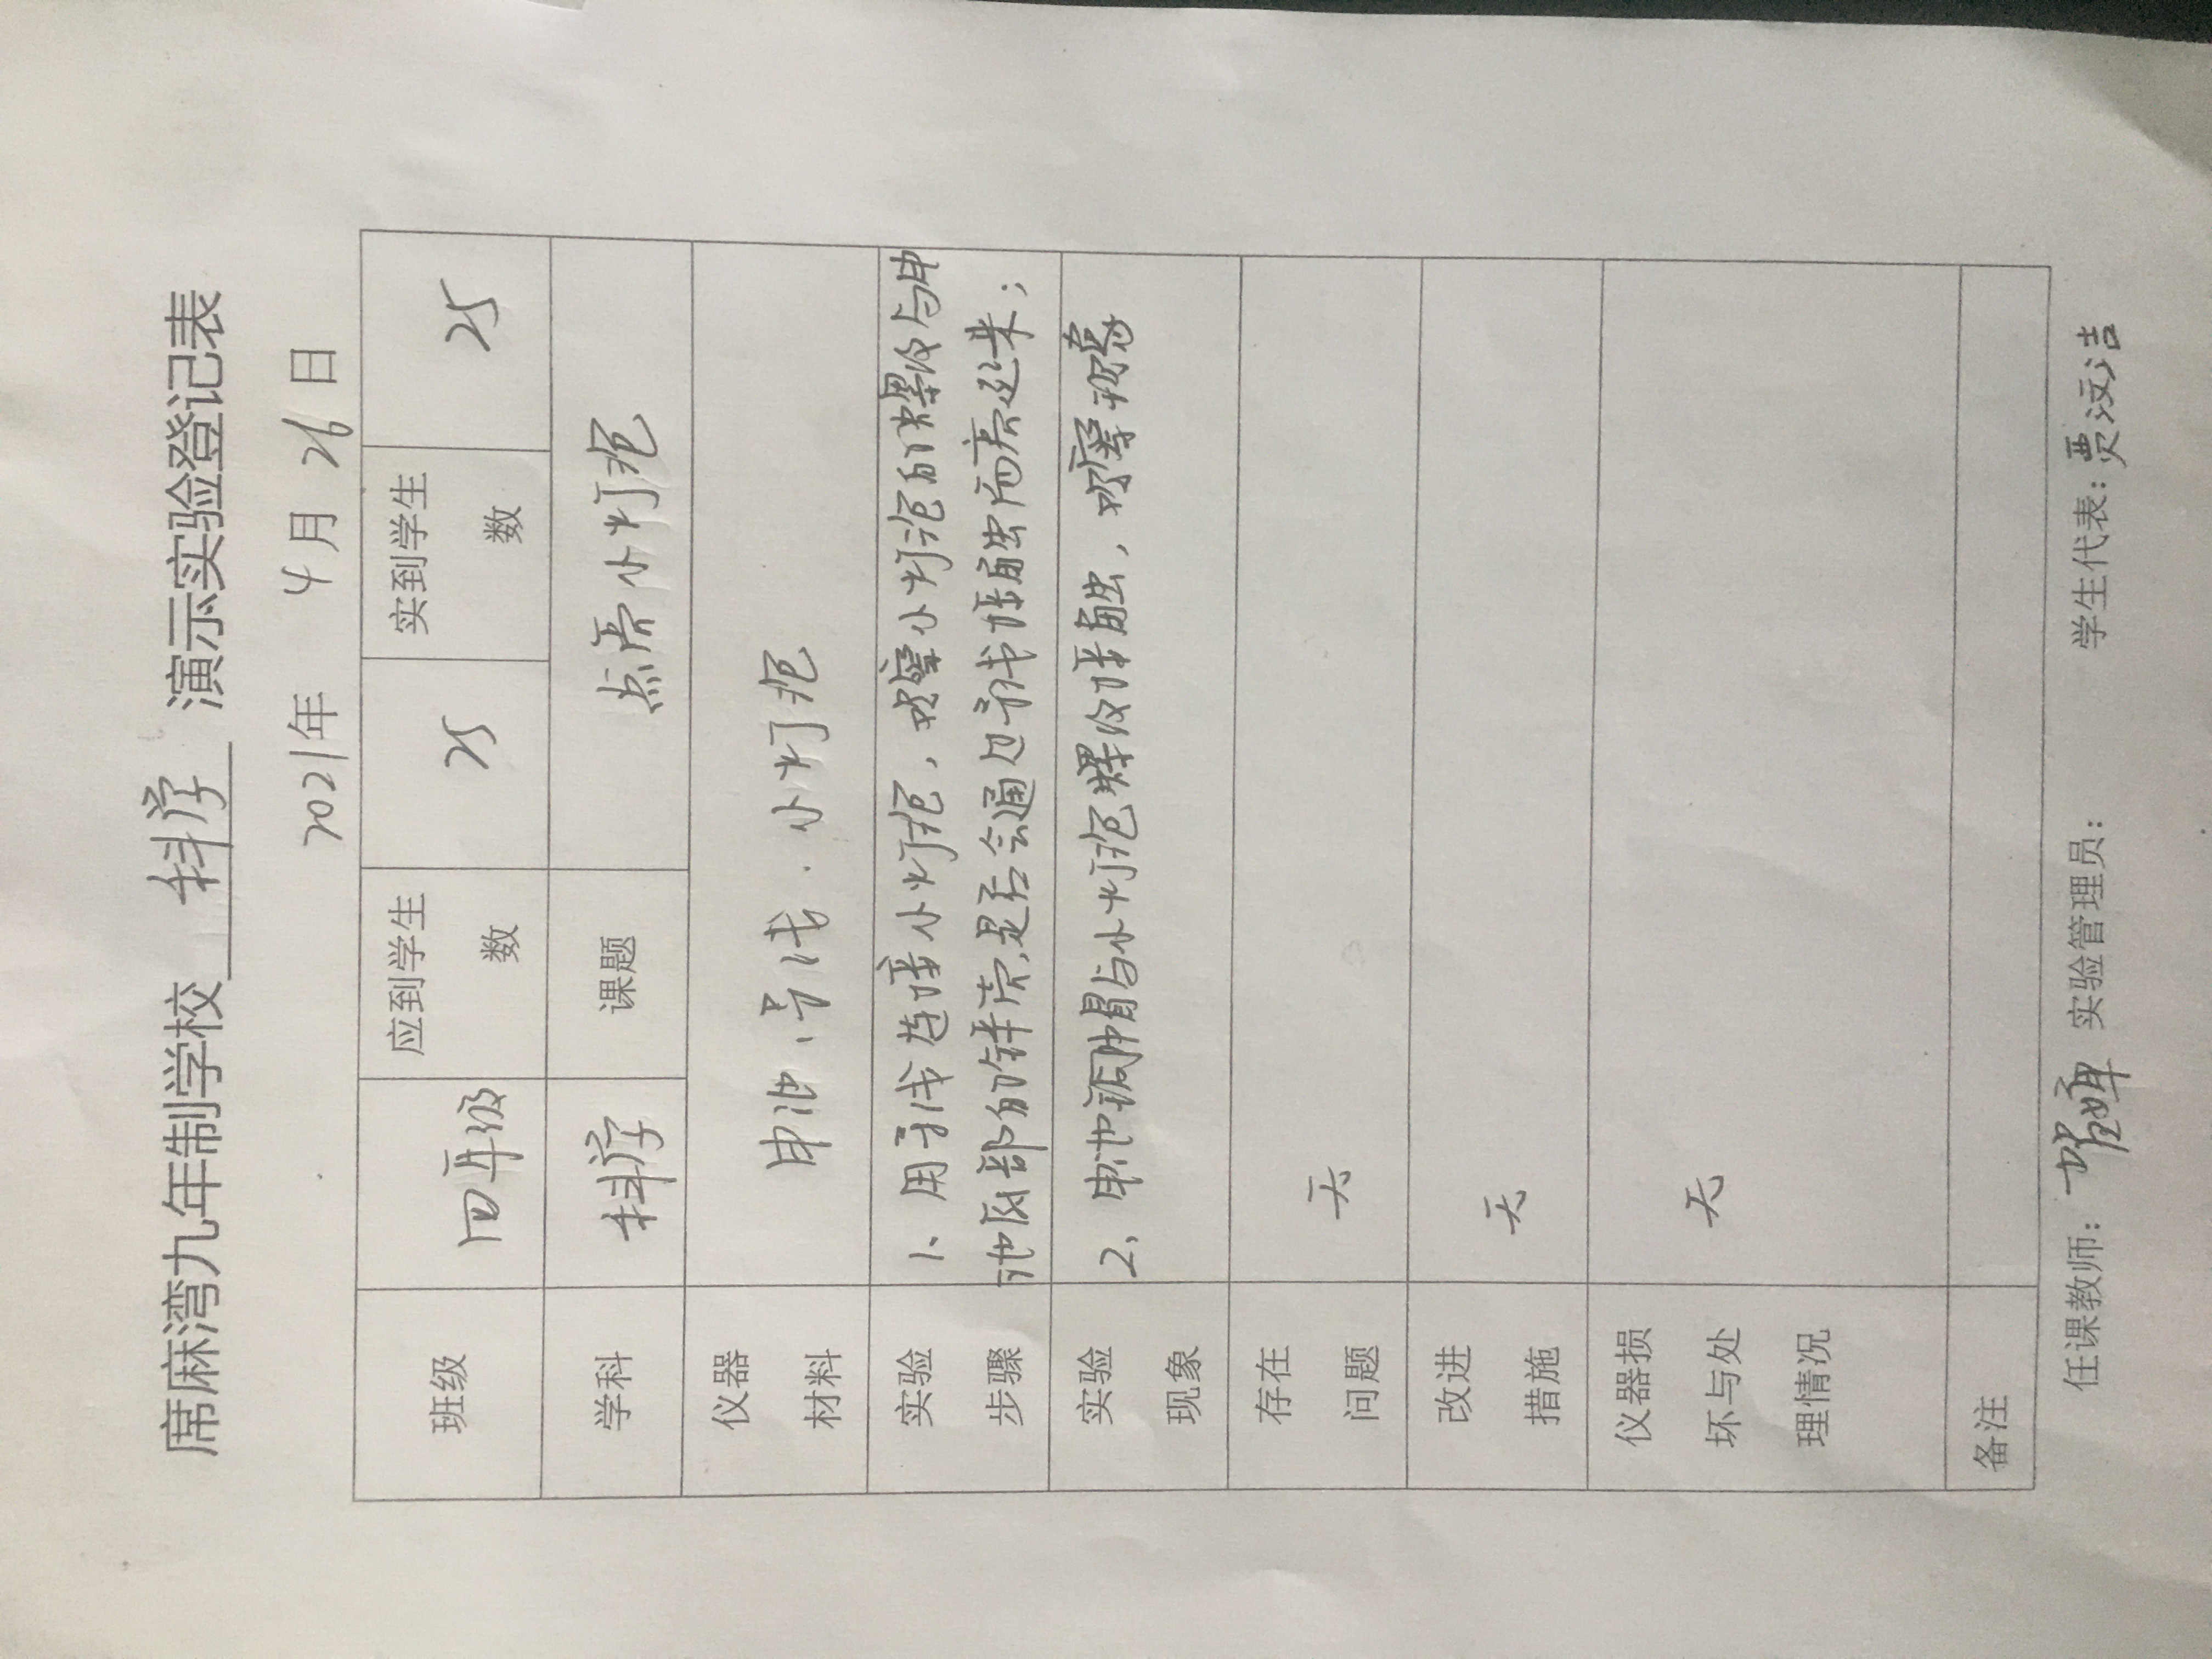 席麻湾九年制学校 科学 演示实验登记表
2021年 4月 26日
班级 四年级 应到学生数 25 实到学生数 25
学科 科学 课题 点亮小灯泡
仪器材料 电池、导线、小灯泡
实验步骤 1、用导线连接小灯泡，观察小灯泡的螺纹与电
池底部的锌壳,是否会通过导线接触而亮起来；
实验现象 2、电池铜帽与小灯泡螺纹接触，观察现象
存在问题 无
改进措施 无
仪器损坏与处理情况 无
备注
任课教师： 实验管理员： 学生代表：贾汶洁